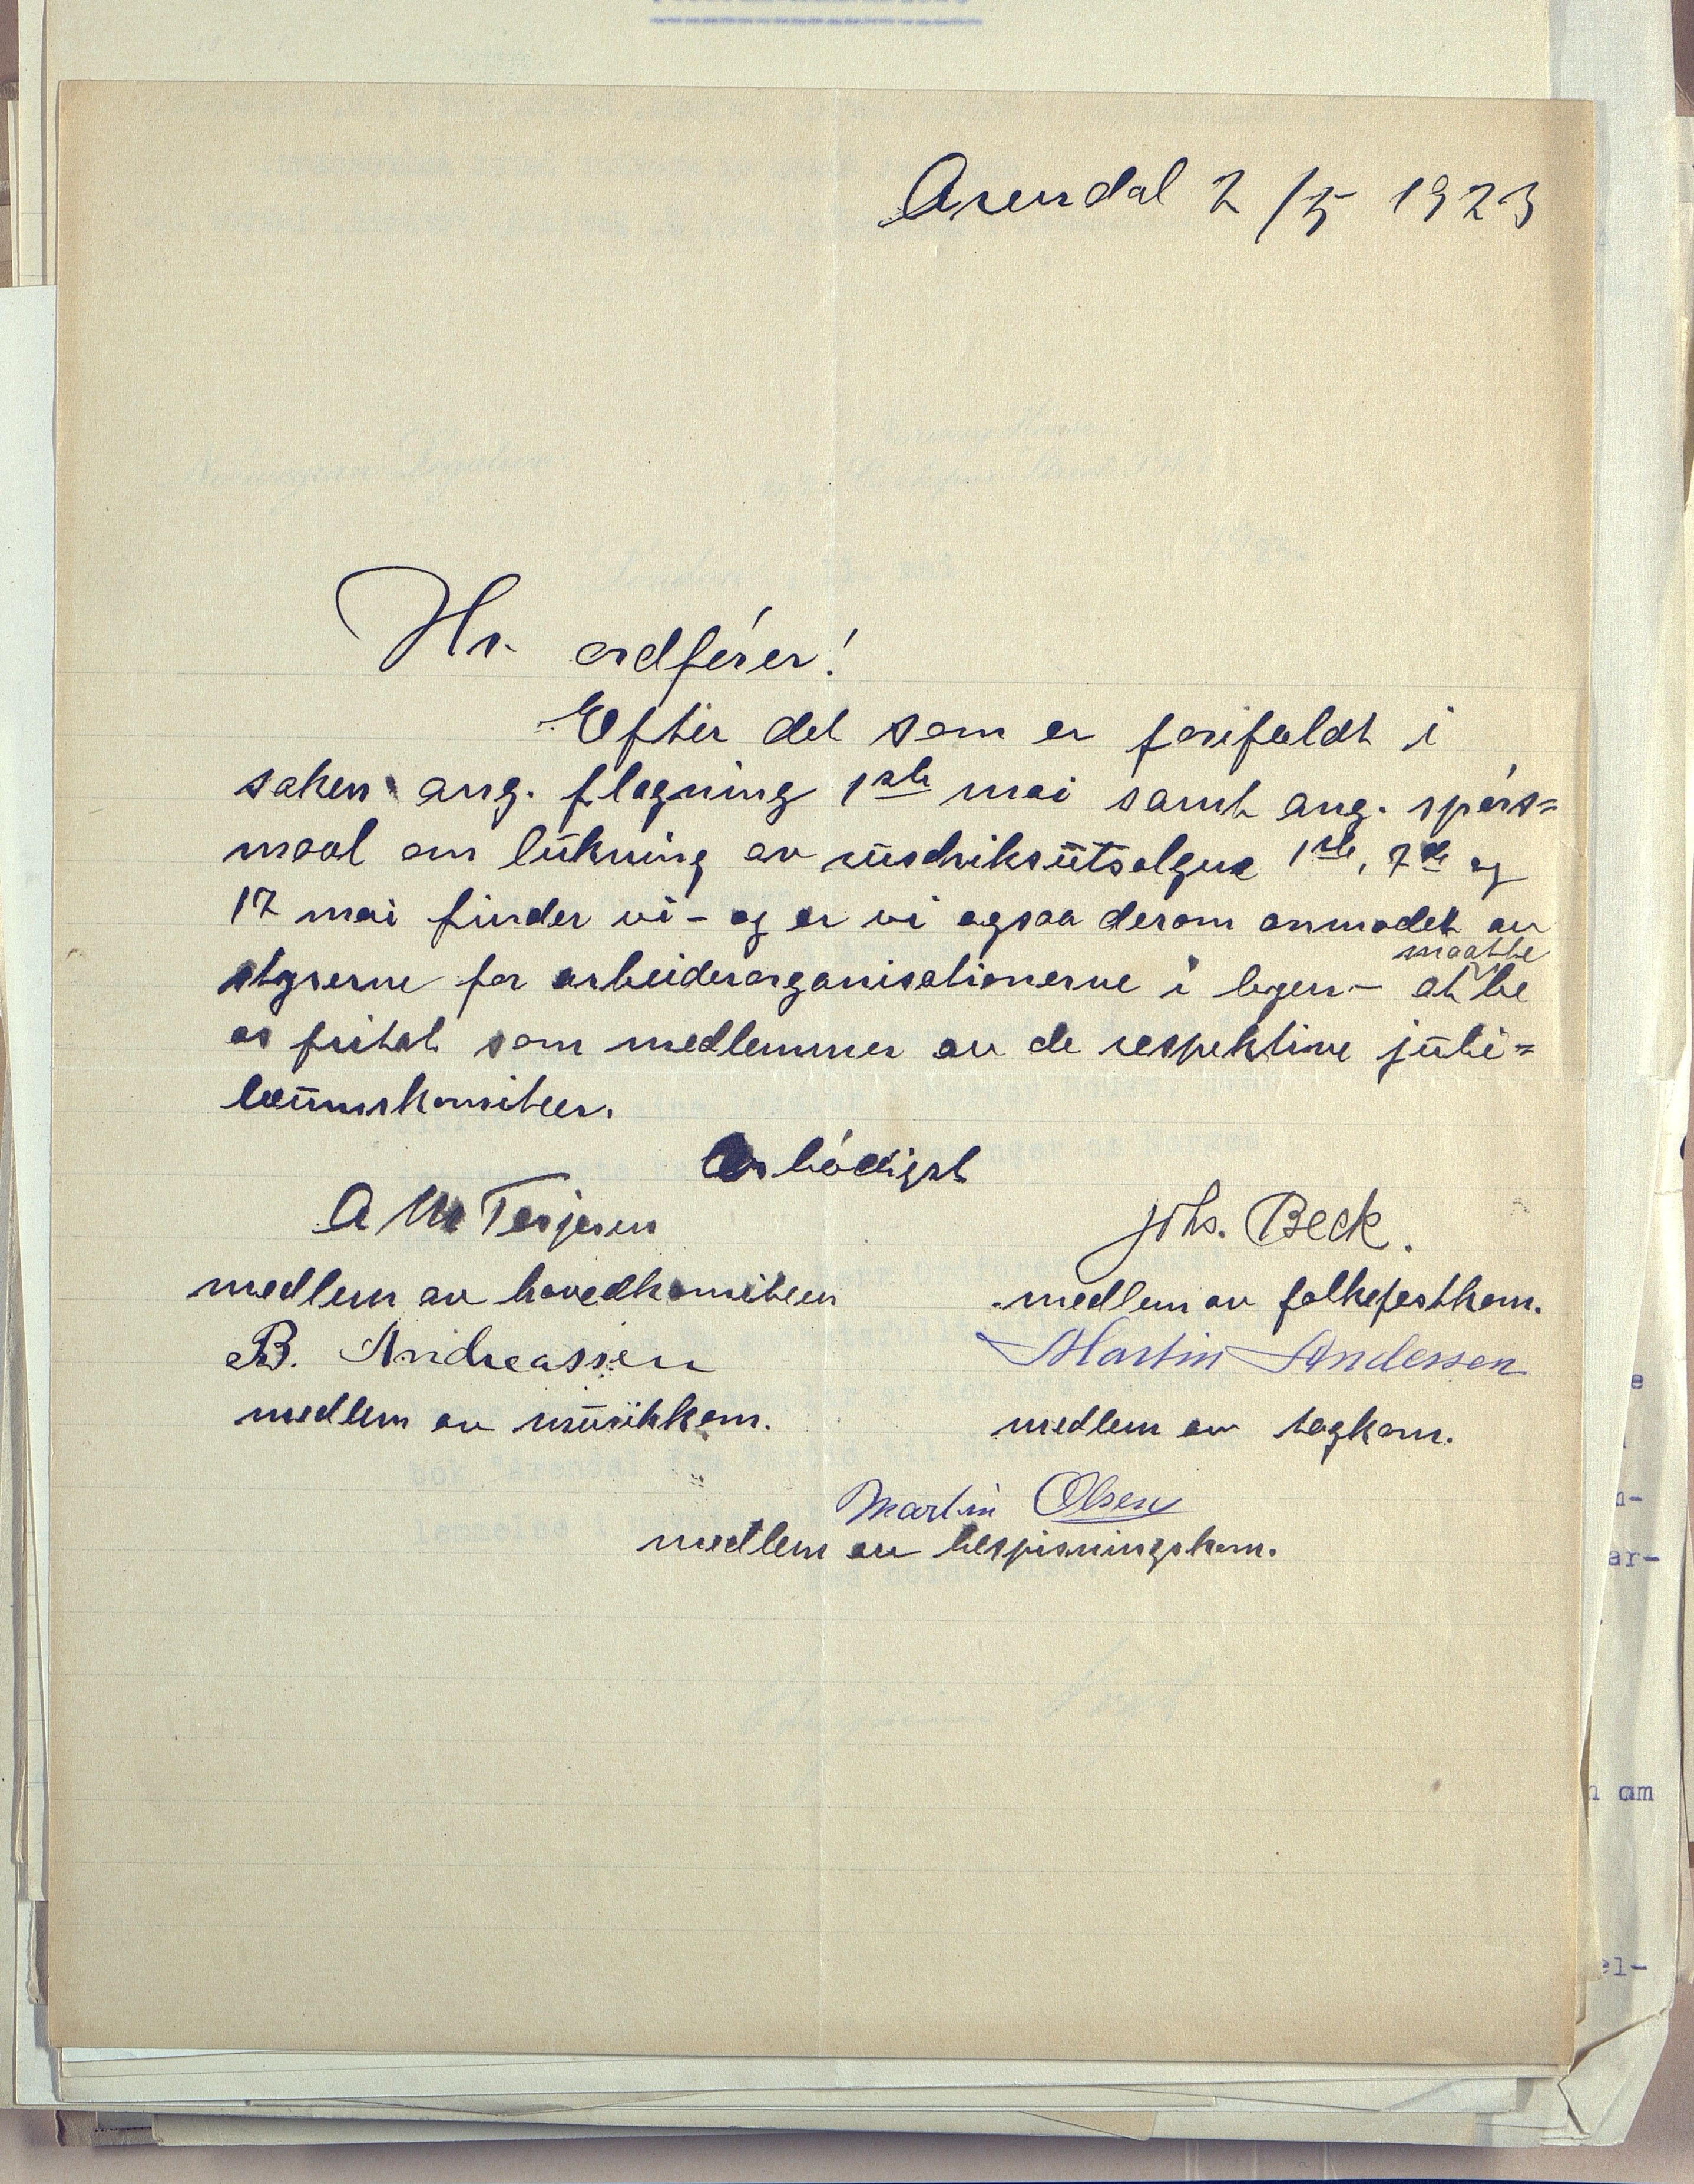 Arendal 2/5 1923
Hr. ordfører!
Efter det som er forefaldt i
saken ang. flagning 1ste mai samt ang. spørs=
maal om lukning av rusdriksutsalgene 1ste, 7de og
17 mai finder vi - og er vi ogsaa derom anmodet av
styrerne for arbeiderorganisationerne i byen - at maatte be
os fritat som medlemmer av de respektive jubi=
læumskomiteer.
Ærbødigst
A M Terjesen
medlem av hovedkomiteen
B. Andreassen
medlem av musikkom.
Johs. Beck.
medlem av folkefestkom.
Martin Anderssen
medlem av togkom.
Martin Olsen
medlem av bespisningskom.
e
ar-
n om
el-